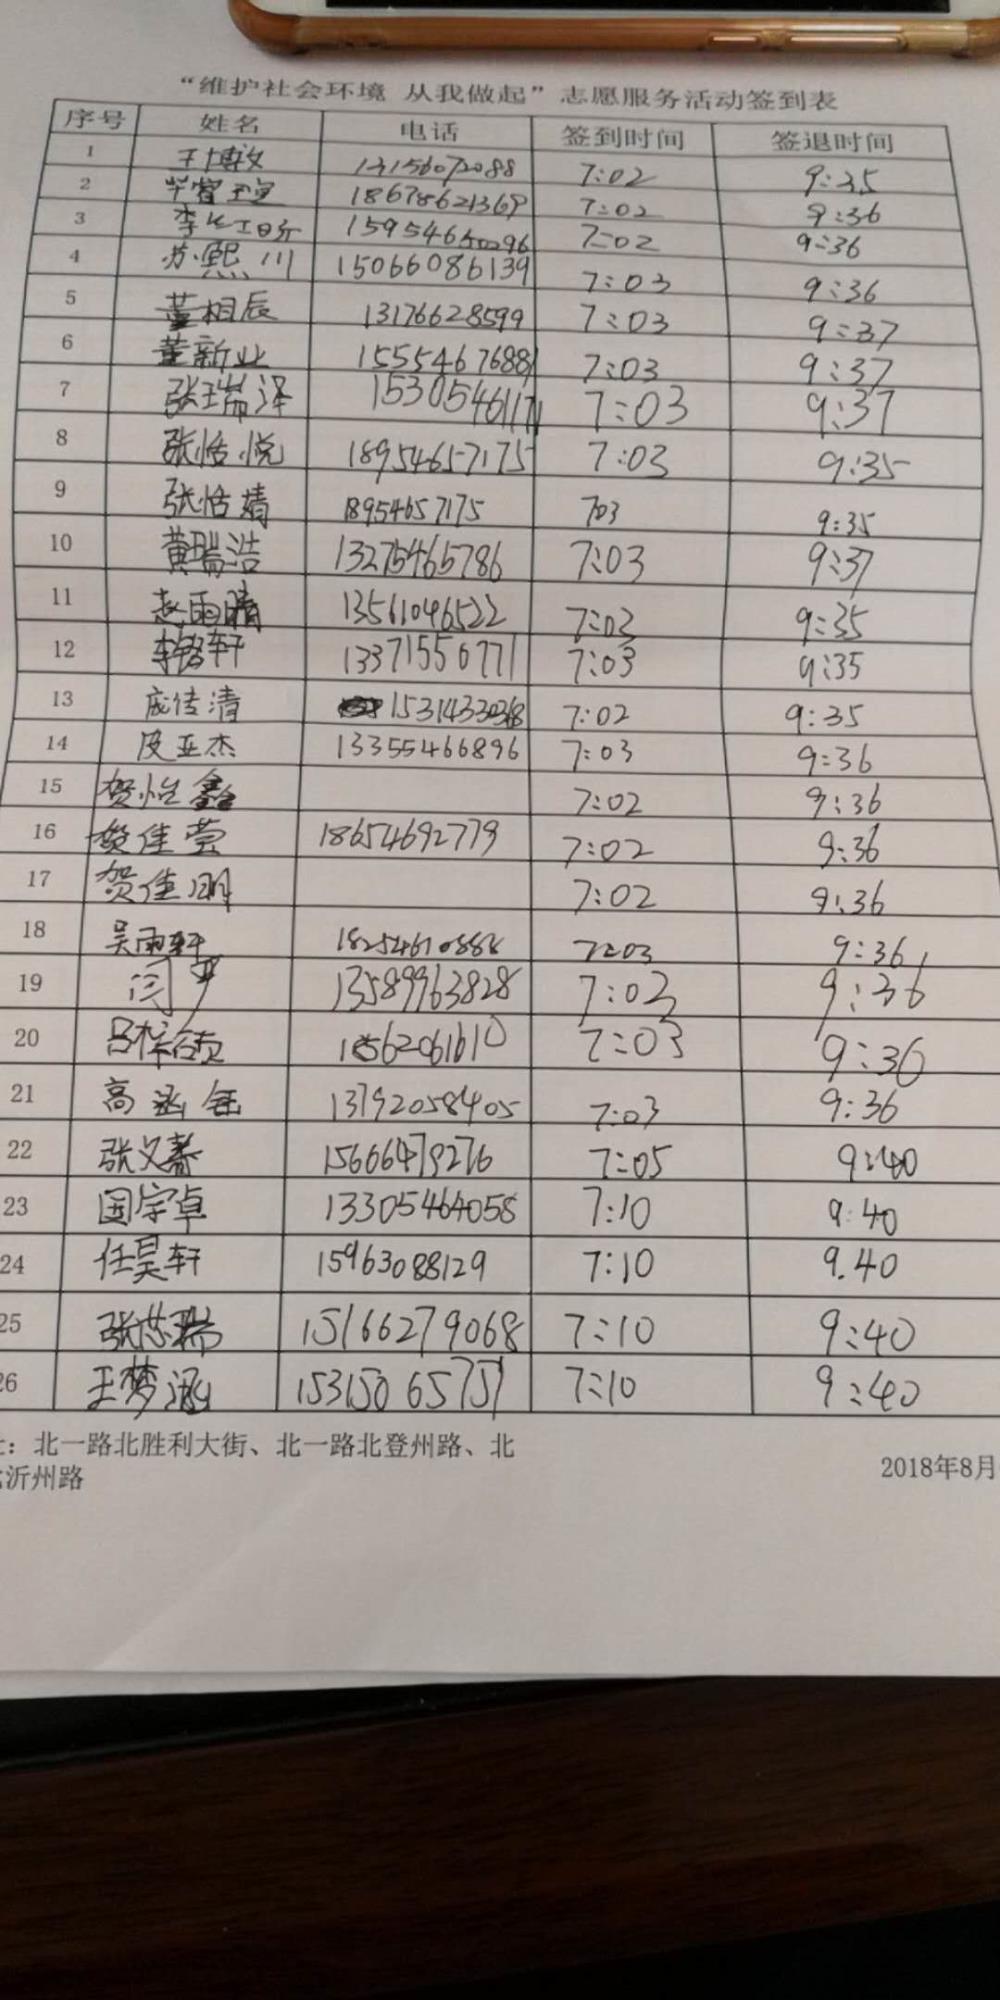 “维护社会环境 从我做起”志愿服务活动签到表
序号 姓名 电话 签到时间 签退时间
1 王博文 13156072088 7:02 9:35
2 18678621369 7:02 9:36
3 李 15954650296 7:02 9:36
4 苏熙川 15066086139 7:03 9:36
5 董相辰 13176628599 7:03 9:37
6 董新业 15554676881 7:03 9:37
7 张瑞泽 15305461171 7:03 9:37
8 张恬悦 18954657175 7:03 9:35
9 张恬婧 18954657175 703 9:35
10 黄瑞浩 13275465786 7:03 9:37
11 赵雨晴 13561046522 7:03 9:35
12 李铭轩 13371550771 7:03 9:35
13 庞传清 7:02 9:35
14 皮亚杰 13355466896 7:03 9:36
15 贺怡鑫 7:02 9:36
16 贺佳莹 18654692779 7:02 9:36
17 贺佳明 7:02 9:36
18 吴雨轩 18254610888 7:03 9:36
19 闫 13589963828 7:03 9:36
20 吕梓 7:03 9:36
21 高 13792058405 7:03 9:36
22 张义春 15606479276 7:05 9:40
23 国宇卓 13305464058 7:10 9:40
24 任昊轩 15963088129 7:10 9.40
25 张芯瑞 15166279068 7:10 9:40
26 王梦涵 15315065751 7:10 9:40
：北一路北胜利大街、北一路北登州路、北
沂州路
2018年8月